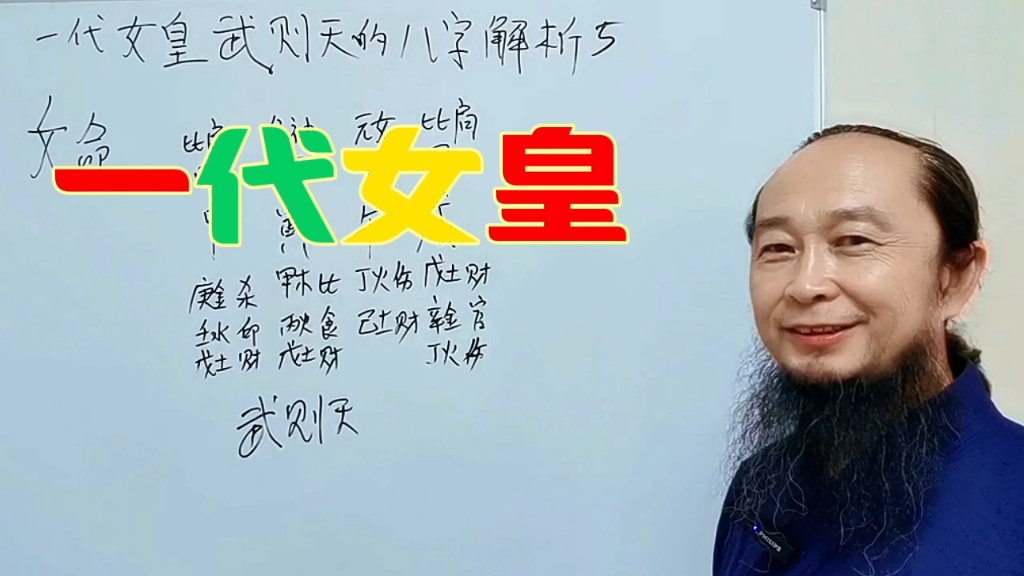 一代女皇武则天的八字解析5
女命 比肩 元女 比肩
一代女皇
寅 午
庚金杀 甲木比 丁火伤 戊土财
壬水印 丙火食 己土财 辛金官
戊土财 戊土财 丁火伤
武则天